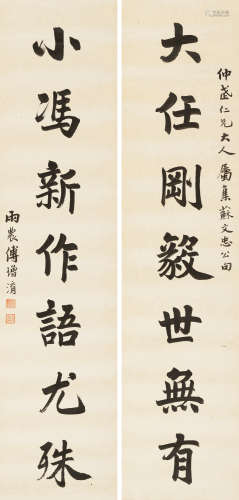 仲茂仁兄大人屬集蘇文忠公句
大任剛毅世無有
小馮新作語尤殊
雨農傅增淯